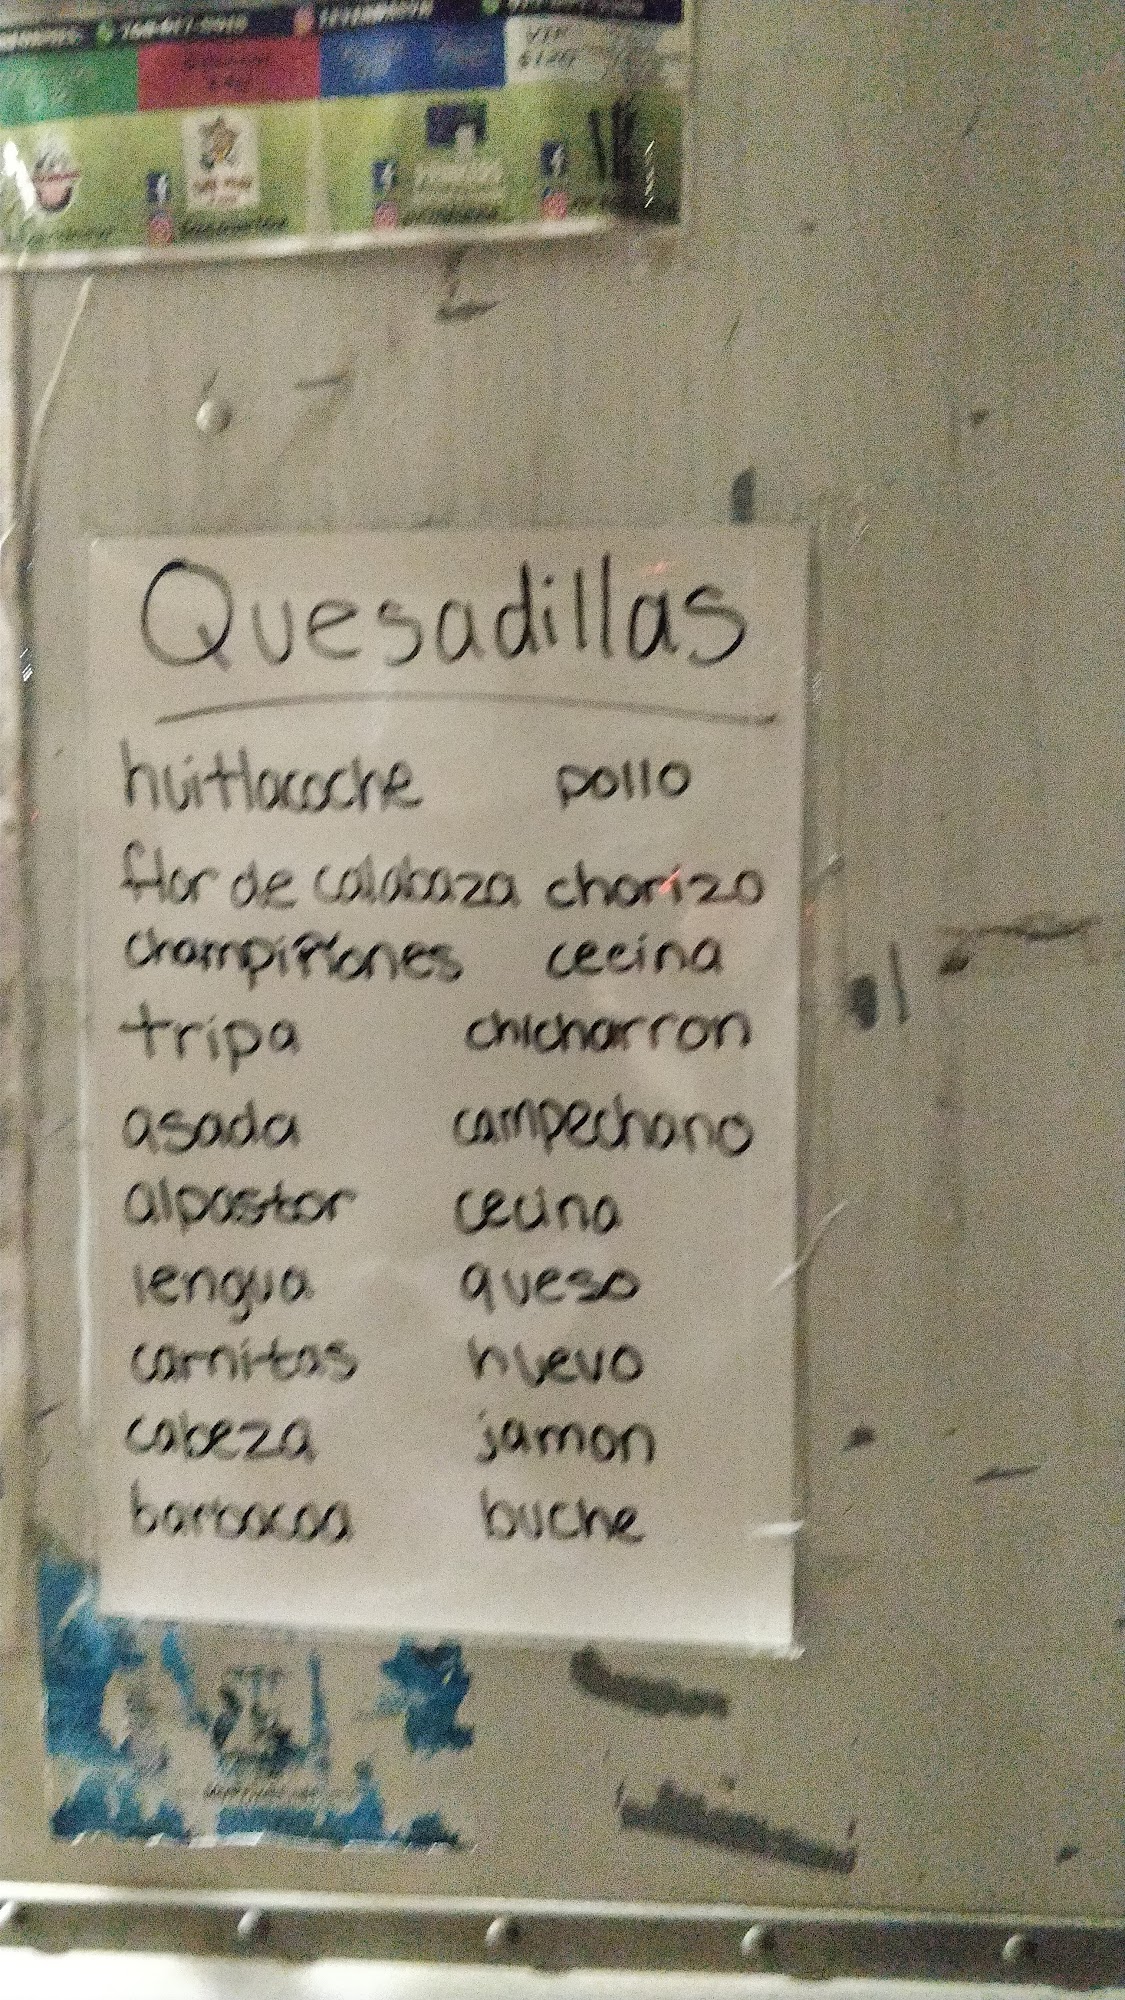 Quesadillas
huitlacoche pollo
flor de calabaza chorizo
champiñones cecina
tripa chicharron
asada campechano
alpastor cecina
lengua queso
carnitas huevo
cabeza jamon
barbacoa buche